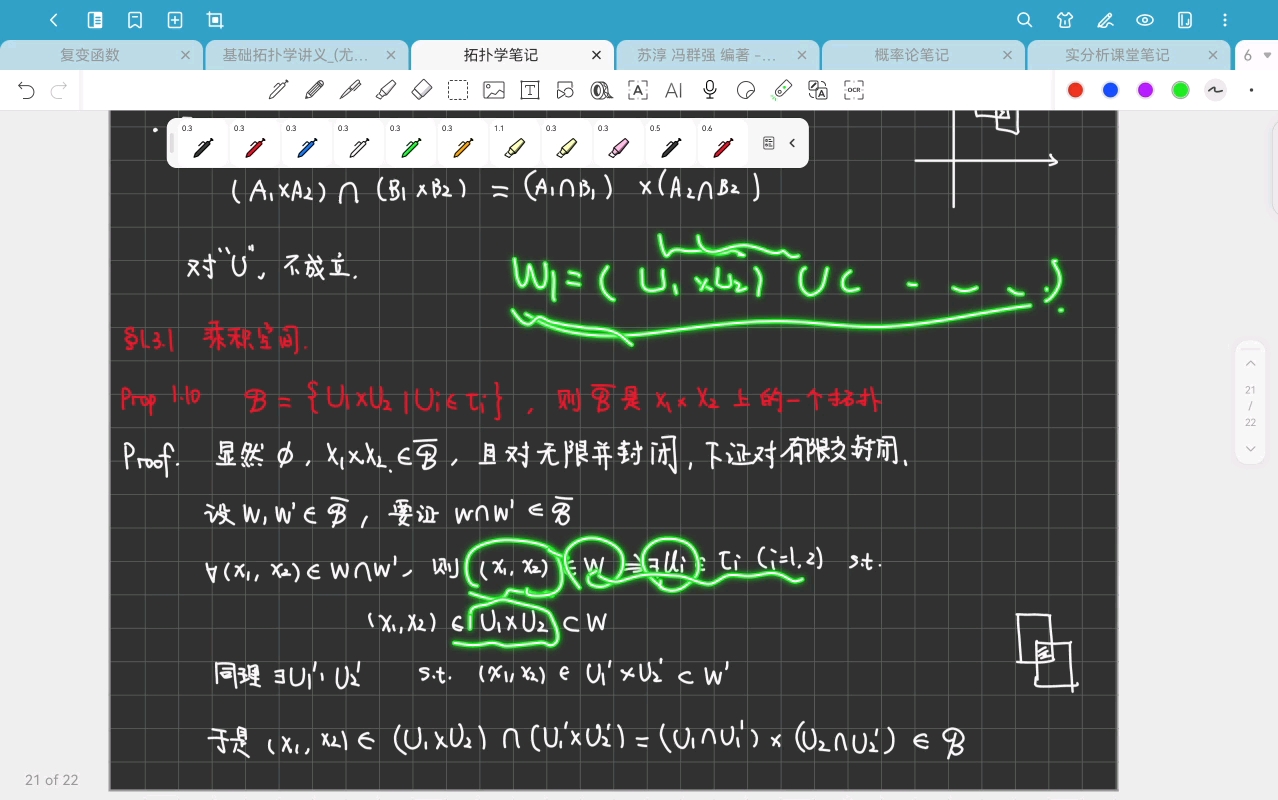 复变函数 × 基础拓扑学讲义_(尤... × 拓扑学笔记 × 苏淳 冯群强 编著 -... × 概率论笔记 × 实分析课堂笔记 × 6
T A AI OCR
0.3 0.3 0.3 0.3 0.3 0.3 1.1 0.3 0.3 0.5 0.6
(A₁×A₂)∩(B₁×B₂) = (A₁∩B₁) ×(A₂∩B₂)
对"∪", 不成立.
W₁=( U₁ ×U₂) ∪ ( - - - .)
§1.3.1 乘积空间.
Prop 1.10 ℬ = {U₁×U₂ | Uᵢ∈τᵢ}, 则 ℬ̅ 是 X₁×X₂ 上的一个拓扑
Proof. 显然 ϕ, X₁×X₂ ∈ ℬ̅, 且对无限并封闭, 下证对有限交封闭.
设 W, W' ∈ ℬ̅, 要证 W∩W' ∈ ℬ̅
∀(x₁, x₂) ∈ W∩W', 则 (x₁, x₂) ∈ W ⇒ ∃Uᵢ ∈ τᵢ (i=1,2) s.t.
(x₁,x₂) ∈ U₁×U₂ ⊂ W
同理 ∃U₁', U₂' s.t. (x₁,x₂) ∈ U₁'×U₂' ⊂ W'
于是 (x₁, x₂) ∈ (U₁×U₂) ∩ (U₁'×U₂') = (U₁∩U₁') × (U₂∩U₂') ∈ ℬ
21
/
22
21 of 22